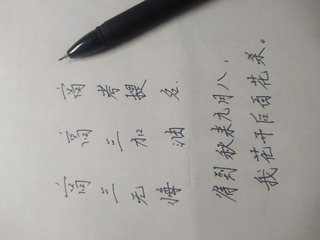 高考名.
高三加油
高三无悔
待到秋来九月八，
我花开后百花杀。